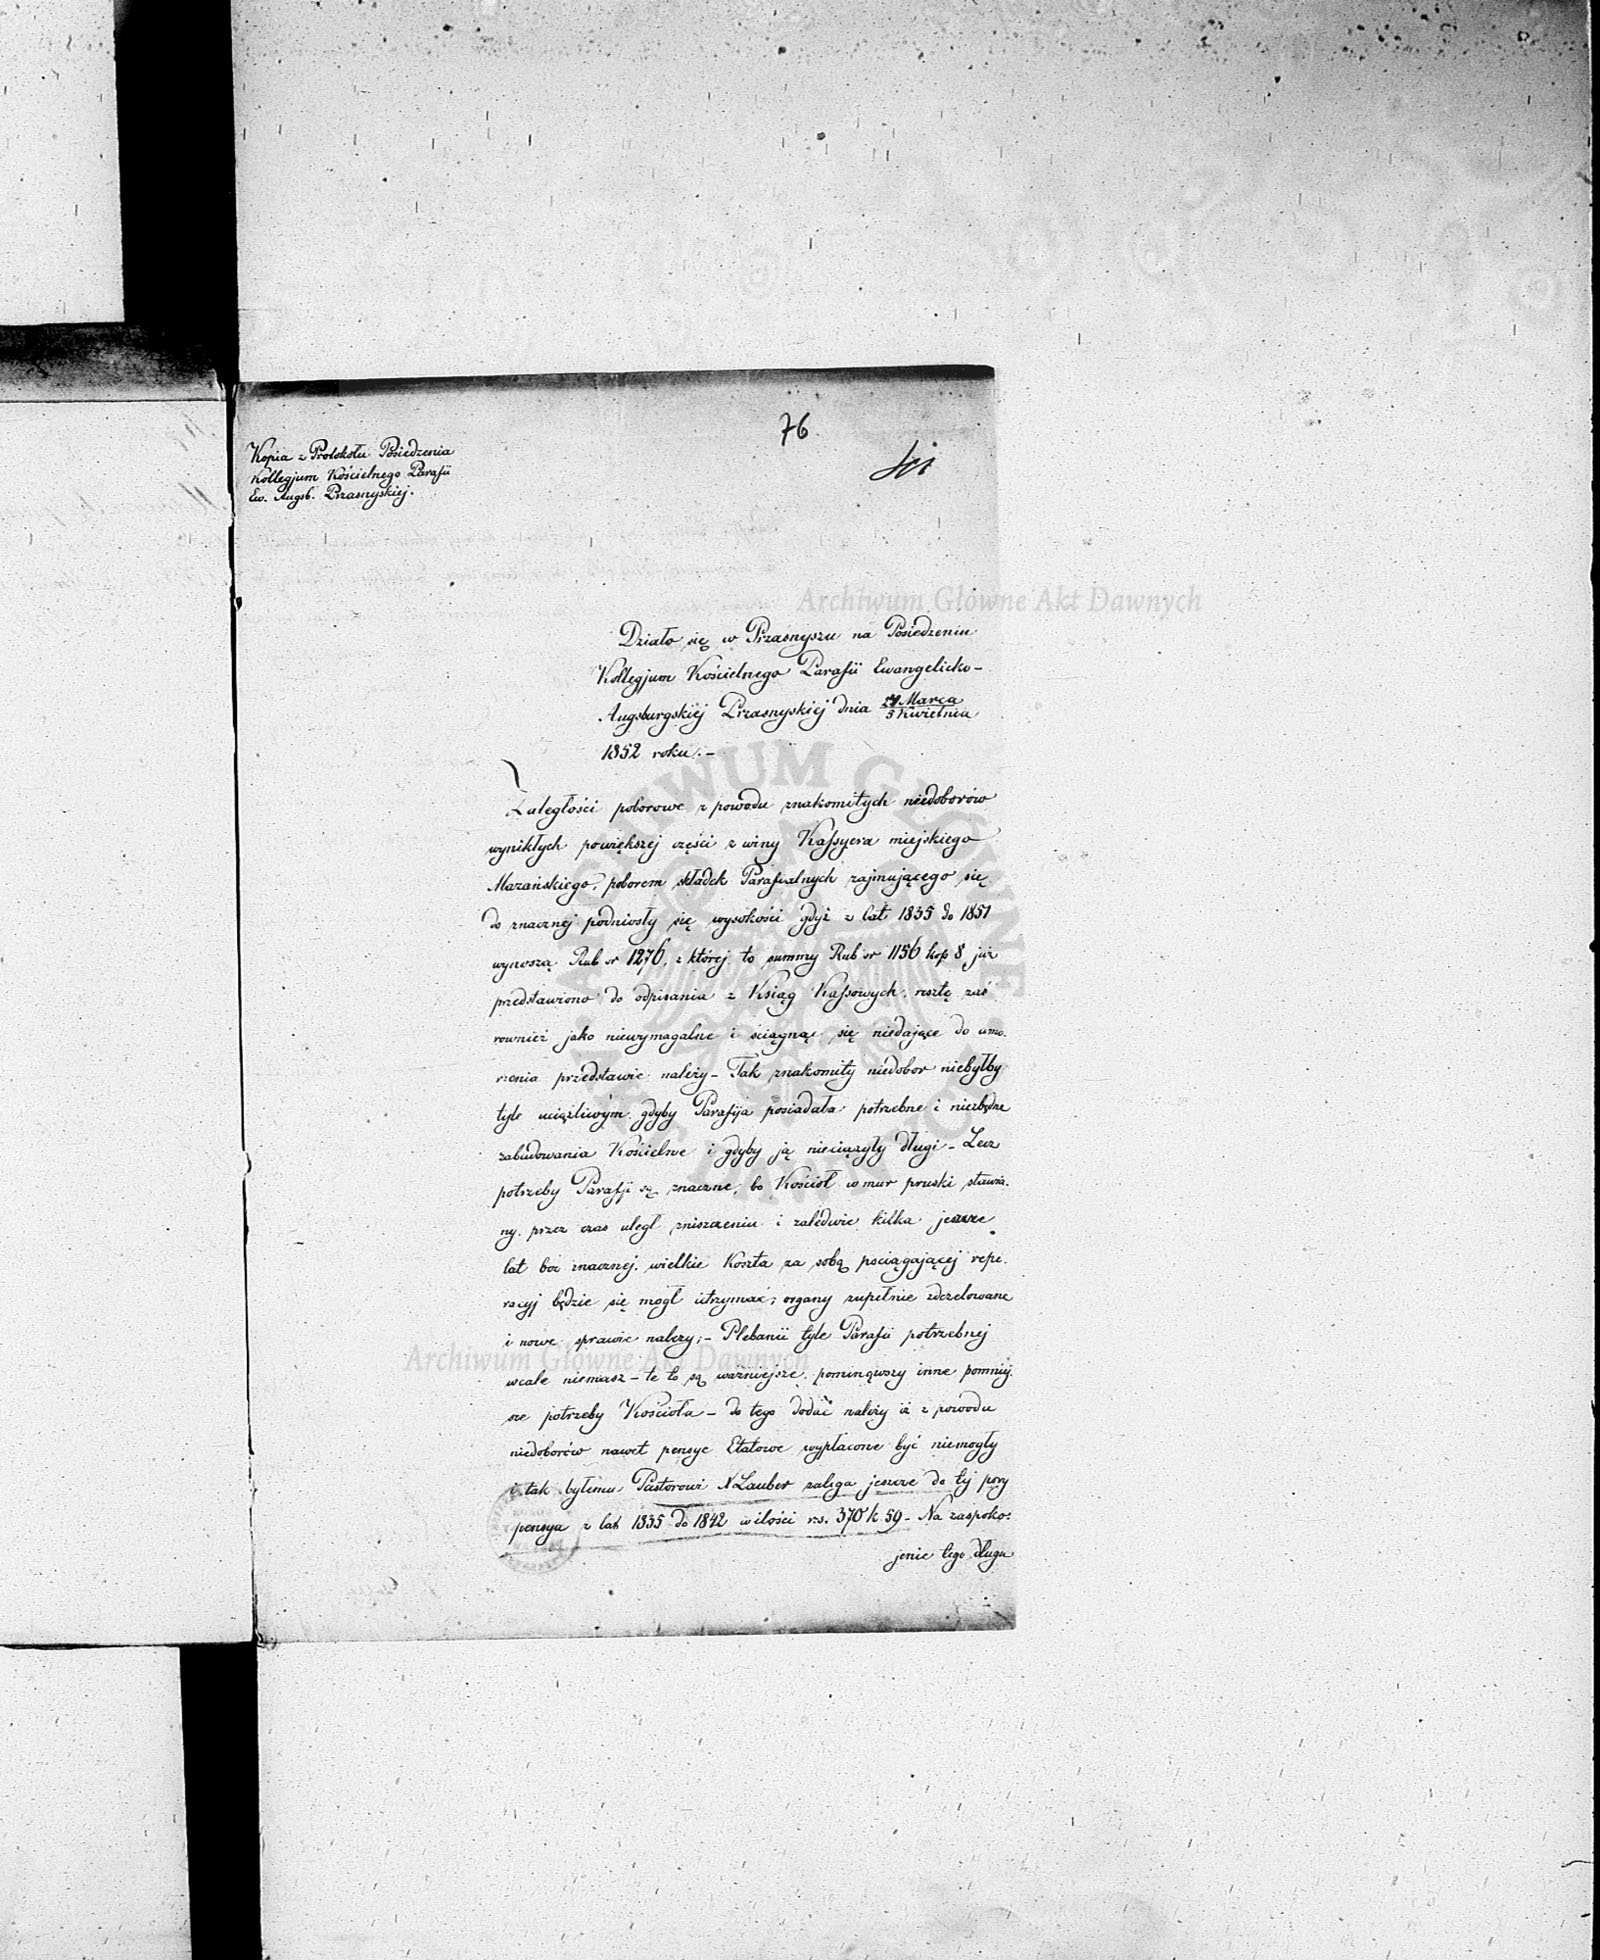 76
Kopia z Protokołu Posiedzenia
Kollegjum Kościelnego Parafii
Ew. Augsb. Przasnyskiej.
Działo się w Przasnyszu na Posiedzeniu
Kollegjum Kościelnego Parafii Ewangelicko-
Augsburgskiej Przasnyskiej dnia Marca
Kwietnia
1852 roku.-
Zaległości poborowe z powodu znakomitych niedoborów
wynikłych powiększej części z winy Kassyera miejskiego
Mazańskiego, poborem składek Parafialnych zajmującego się
do znacznej podniosły się wysokości gdyż z lat 1835 do 1851
wynoszą Rub sr 1276, z której to summy Rub sr 1156 kop 8 już
przedstawiono do odpisania z Ksiąg Kassowych, resztę zaś
rownież jako niewymagalne i ściągnąć się niedające do umo.
rzenia przedstawic należy - Tak znakomity niedobor niebyłby
tyle uciążliwym, gdyby Parafija posiadała potrzebne i niezbędne
zabudowania Kościelne i gdyby ją nieciążyły długi - Lecz
potrzeby Parafji są znaczne, bo Kościół w mur pruski stawia.
ny, przez czas uległ zniszczeniu i zaledwie kilka jeszcze
lat bez znacznej, wielkie Koszta za sobą pociągającej repe.
racyj będzie się mogł utrzymać; organy zupełnie zdezelowane
i nowe sprawic należy; - Plebanii tyle Parafii potrzebnej
wcale niemasz - te to są ważniejsze, pominąwszy inne pomniej.
sze potrzeby Kościoła - do tego dodać należy iż z powodu
niedoborów nawet pensye Etatowe wypłacone być niemogły
i tak byłemu Pastorowi Lauber zalega jeszcze do tej pory
pensya z lat 1835 do 1842 w ilości r.s. 370 k 59 - Na zaspoko:
jenie tego długu
Archiwum Główne Akt Dawnych
Archiwum Główne Akt Dawnych